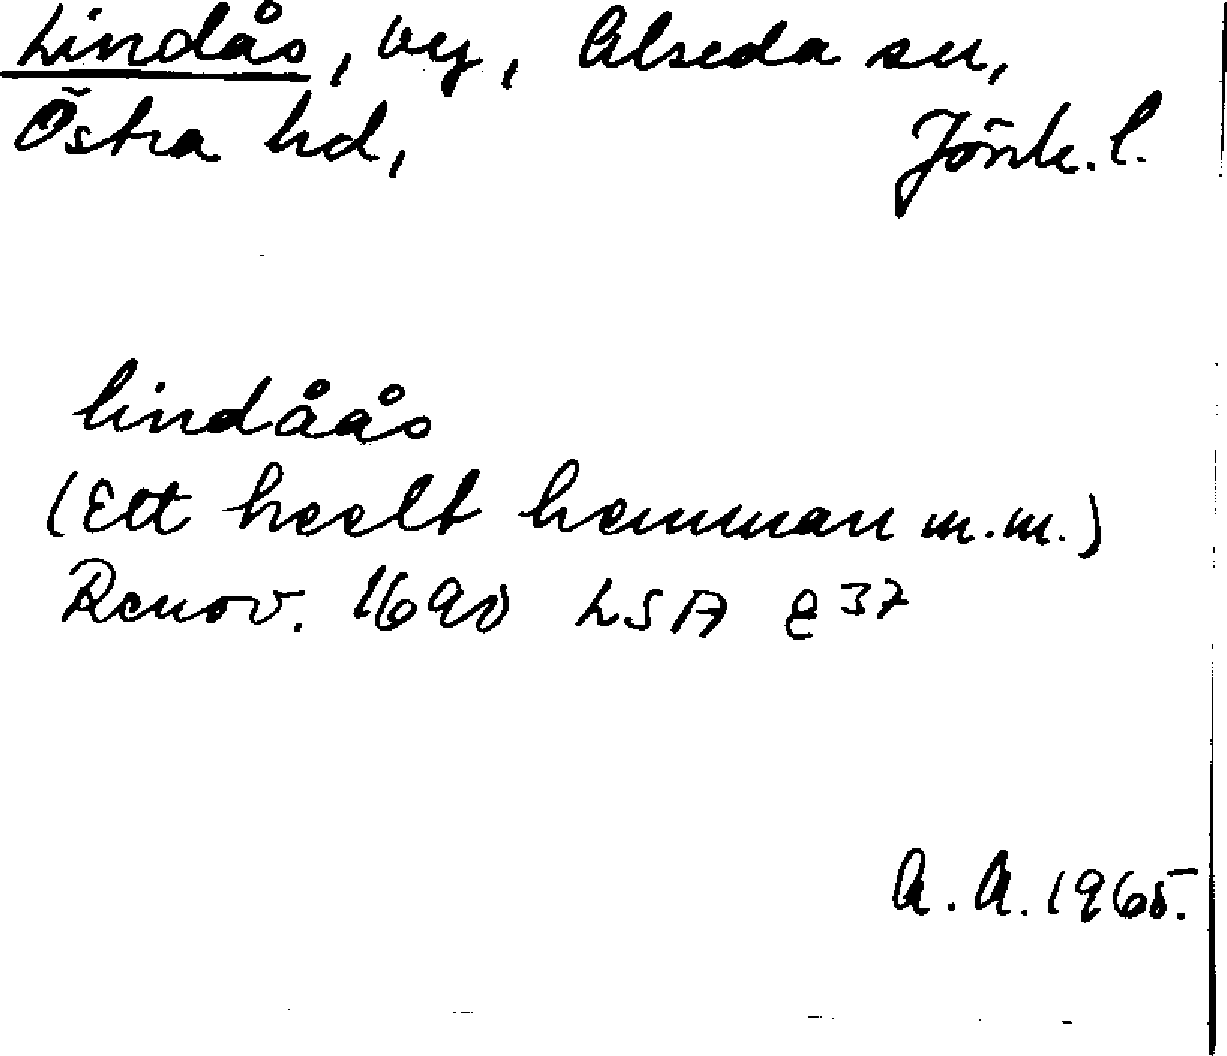 Lindås, by, Alseda sn,
Östra hd, Jönk. l.
lindåås
(Ett heelt hemman m.m.)
Renov. 1690 LSA E 37
A. A. 1965.